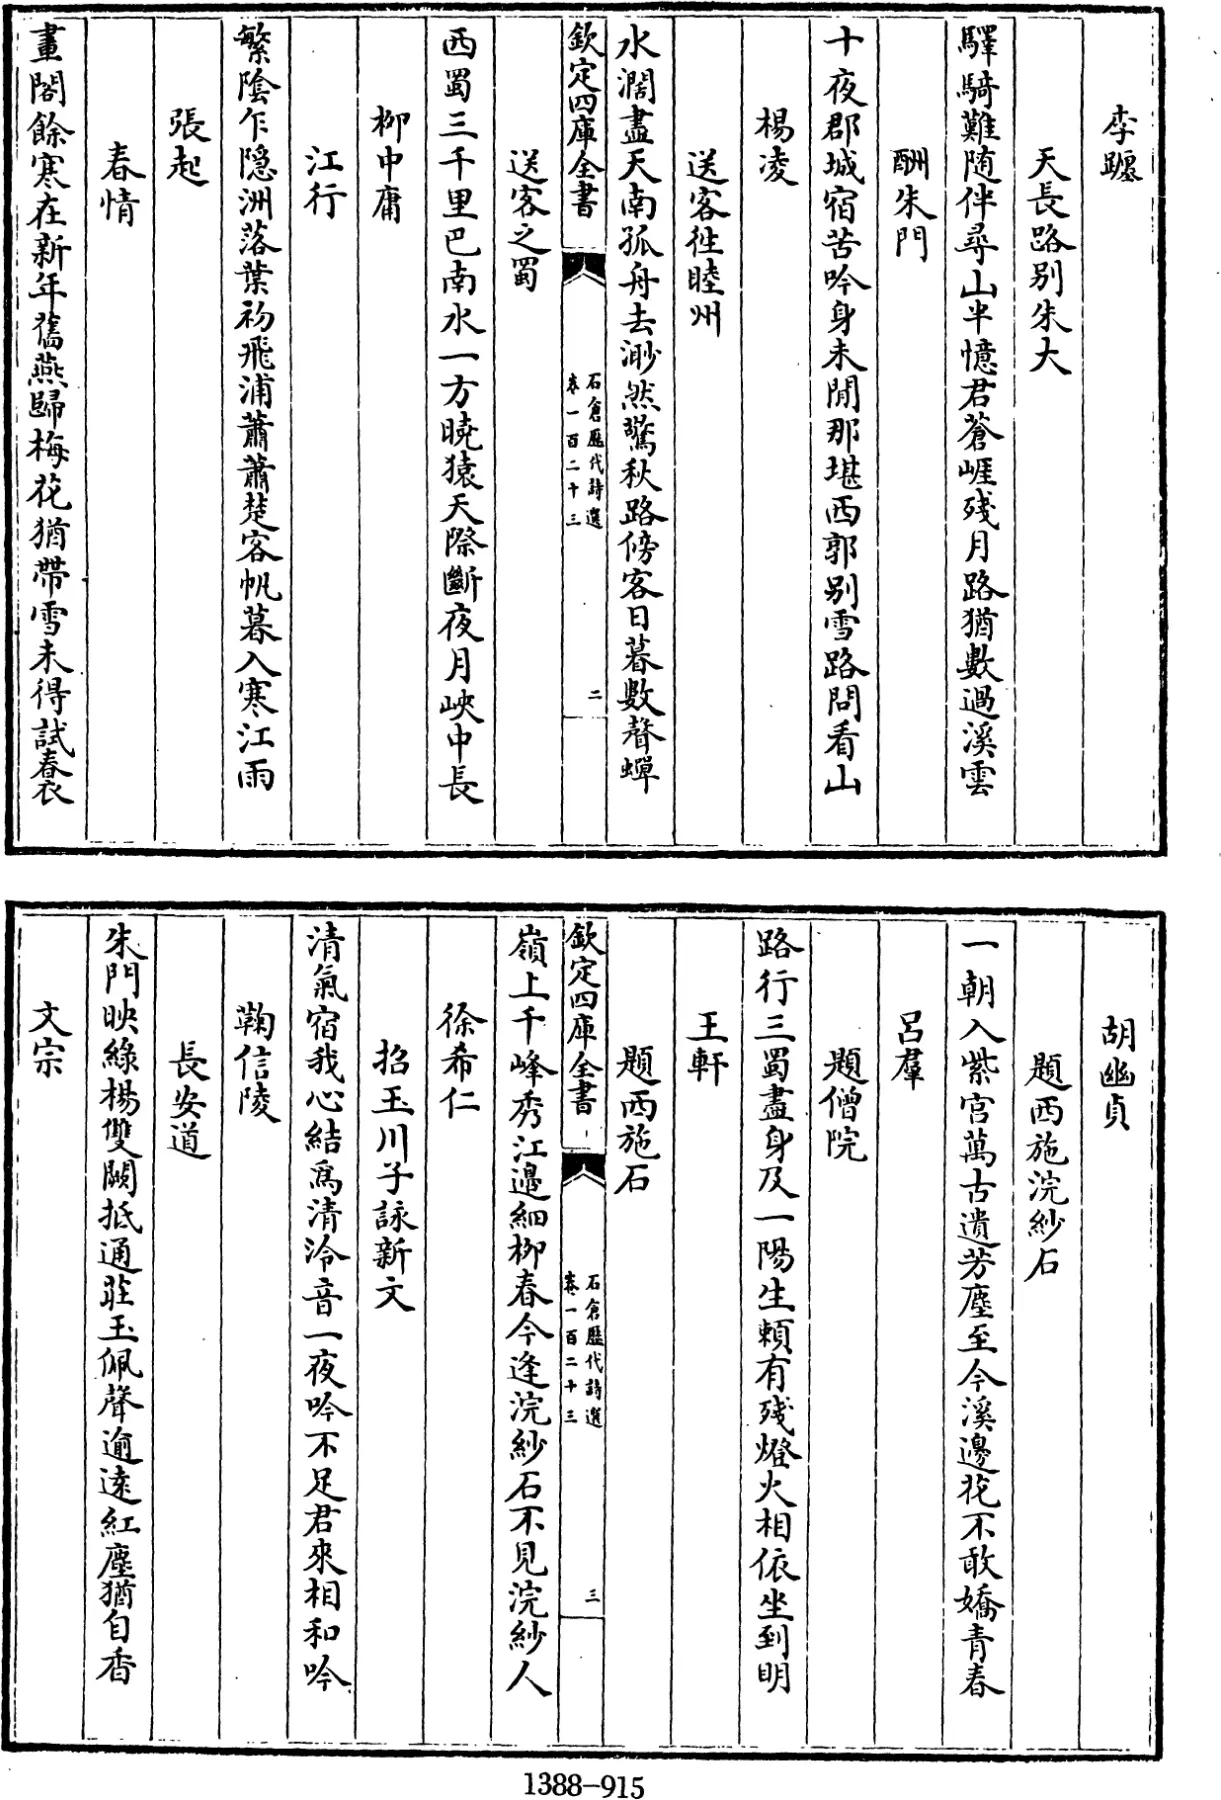 李躔
天長路别朱大
驛騎難随伴尋山半憶君蒼崕殘月路猶數過溪雲
酬朱門
十夜郡城宿苦吟身未閒那堪西郭别雪路問看山
楊凌
送客往睦州
水濶盡天南孤舟去渺然驚秋路傍客日暮數聲蟬
欽定四庫全書
石倉歷代詩選
卷一百二十三
二
送客之蜀
西蜀三千里巴南水一方曉猿天際斷夜月峽中長
柳中庸
江行
繁陰乍隱洲落葉初飛浦蕭蕭楚客帆暮入寒江雨
張起
春情
畫閣餘寒在新年舊燕歸梅花猶帶雪未得試春衣
胡幽貞
題西施浣紗石
一朝入紫宫萬古遺芳塵至今溪邊花不敢嬌青春
呂羣
題僧院
路行三蜀盡身及一陽生賴有殘燈火相依坐到明
王軒
題西施石
欽定四庫全書
石倉歷代詩選
卷一百二十三
三
嶺上千峰秀江邊細柳春今逢浣紗石不見浣紗人
徐希仁
招玉川子詠新文
清氣宿我心結爲清泠音一夜吟不足君來相和吟
鞠信陵
長安道
朱門映綠楊雙闕抵通莊玉佩聲逾遠紅塵猶自香
文宗
1388-915